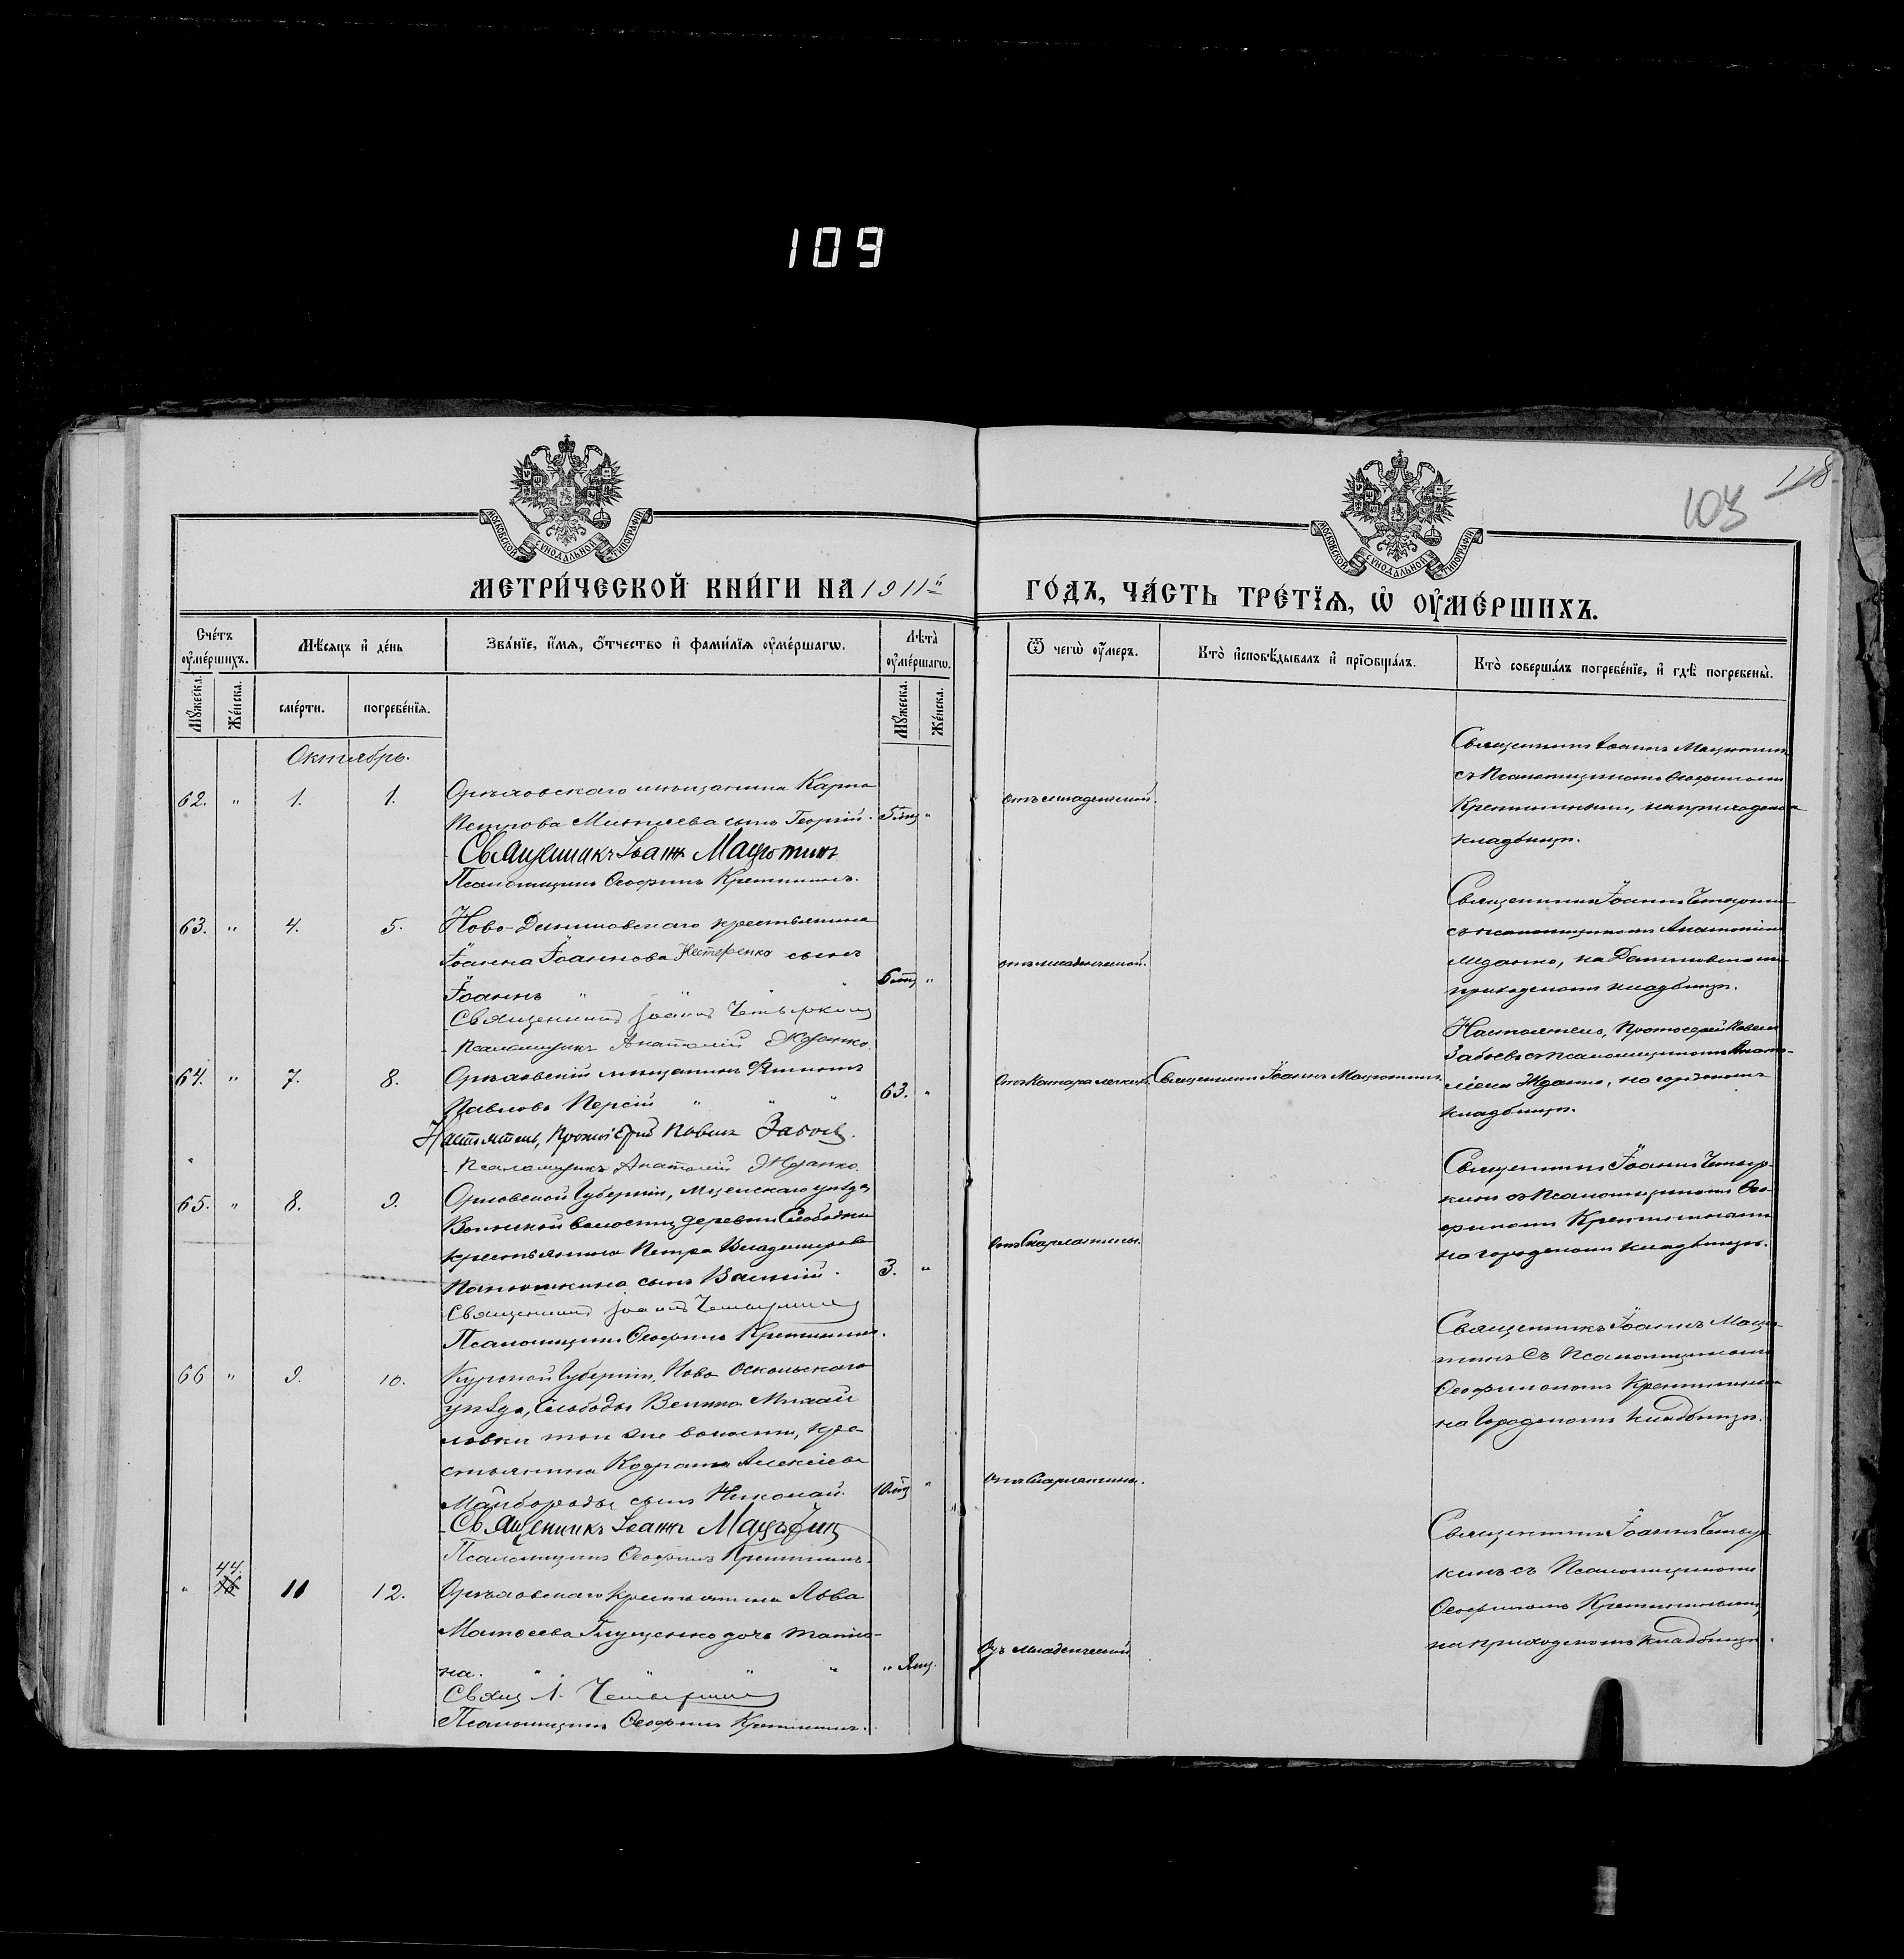 109
118
103
МОСКОВСКОЙ СѴНОДАЛЬНОЙ ТИПОГРАФІИ
МОСКОВСКОЙ СѴНОДАЛЬНОЙ ТИПОГРАФІИ
МЕТРИ́ЧЕСКОЙ КНИ́ГИ НА 1911й
ГО́ДЪ, ЧА́СТЬ ТРЕ́ТЇѦ, Ѡ҆ ОУ҆МЕ́РШИХЪ.
Сче́тъ оу҆ме́ршихъ.
Мѣ́сѧцъ и҆ де́нь
Зва́нїе, и҆́мѧ, ѻ҆́тчество и҆ фами́лїѧ оу҆ме́ршагѡ.
Лѣта̀ оу҆ме́ршагѡ.
Ѿ чегѡ̀ оу҆́меръ.
Кто̀ и҆сповѣ́дывалъ и҆ прїѻбща́лъ.
Кто̀ соверша́лъ погребе́нїе, и҆ гдѣ̀ погребены̀.
Мꙋ́жеска. Же́нска.
сме́рти. погребе́нїѧ.
Мꙋ́жеска. Же́нска.
Октябрь.
62. " 1. 1.
Орѣховскаго мѣщанина Карпа
Петрова сынъ Георгій. 5 мц "
Священникъ Іоаннъ Мацютинъ
Псаломщикъ Ѳеофилъ
отъ младенческой.
Священникъ Іоаннъ Мацютинъ
съ Псаломщикомъ Ѳеофиломъ
на приходскомъ
кладбищѣ.
63. " 4. 5.
Ново-Даниловскаго крестьянина
Іоанна Іоаннова Нестеренко сынъ
Іоаннъ " " " 6 мц "
Священникъ Іоаннъ Четыркинъ
Псаломщикъ Анатолій Жданко.
отъ младенческой.
Священникъ Іоаннъ Четыркинъ
съ псаломщикомъ Анатоліемъ
Жданко, на Даниловскомъ
приходскомъ кладбищѣ.
64. " 7. 8.
Орѣховскій мѣщанинъ Филиппъ
Павловъ " " " 63. "
Настоятель, Протоіерей Павелъ
Псаломщикъ Анатолій Жданко.
Отъ Катара легкихъ.
Священникъ Іоаннъ Мацютинъ
Настоятель, Протоіерей Павелъ
съ псаломщикомъ Анато-
ліемъ Жданко, на городскомъ
кладбищѣ.
65. " 8. 9.
Орловской Губерніи, Мценскаго уѣзда
волости, деревни Слободки
крестьянина Петра Владимірова
Панюшкина сынъ Василій. 3. "
Священникъ Іоаннъ Четыркинъ
Псаломщикъ Ѳеофилъ
Отъ Скарлатины.
Священникъ Іоаннъ Четыр-
кинъ съ Псаломщикомъ Ѳео-
филомъ
на городскомъ кладбищѣ.
66 " 9. 10.
Курской Губерніи, Ново Оскольскаго
уѣзда, Слободы Велико Михай
ловки той же волости, кре-
стьянина Кодрата Алексѣева
Майбороды сынъ Николай. 10 мц "
Священникъ Іоаннъ Мацютинъ
Псаломщикъ Ѳеофилъ
Отъ Скарлатины.
Священникъ Іоаннъ Мацю-
тинъ Съ Псаломщикомъ
Ѳеофиломъ
на Городскомъ кладбищѣ.
" 44. 11 12.
Орѣховскаго крестьянина Льва
Матѳеева Глущенко дочь Татіа-
на. " " " "
Свящ. І. Четыркинъ
Псаломщикъ Ѳеофилъ
Отъ младенческой
Священникъ Іоаннъ Четыр-
кинъ съ Псаломщикомъ
Ѳеофиломъ
на приходскомъ кладбищѣ.